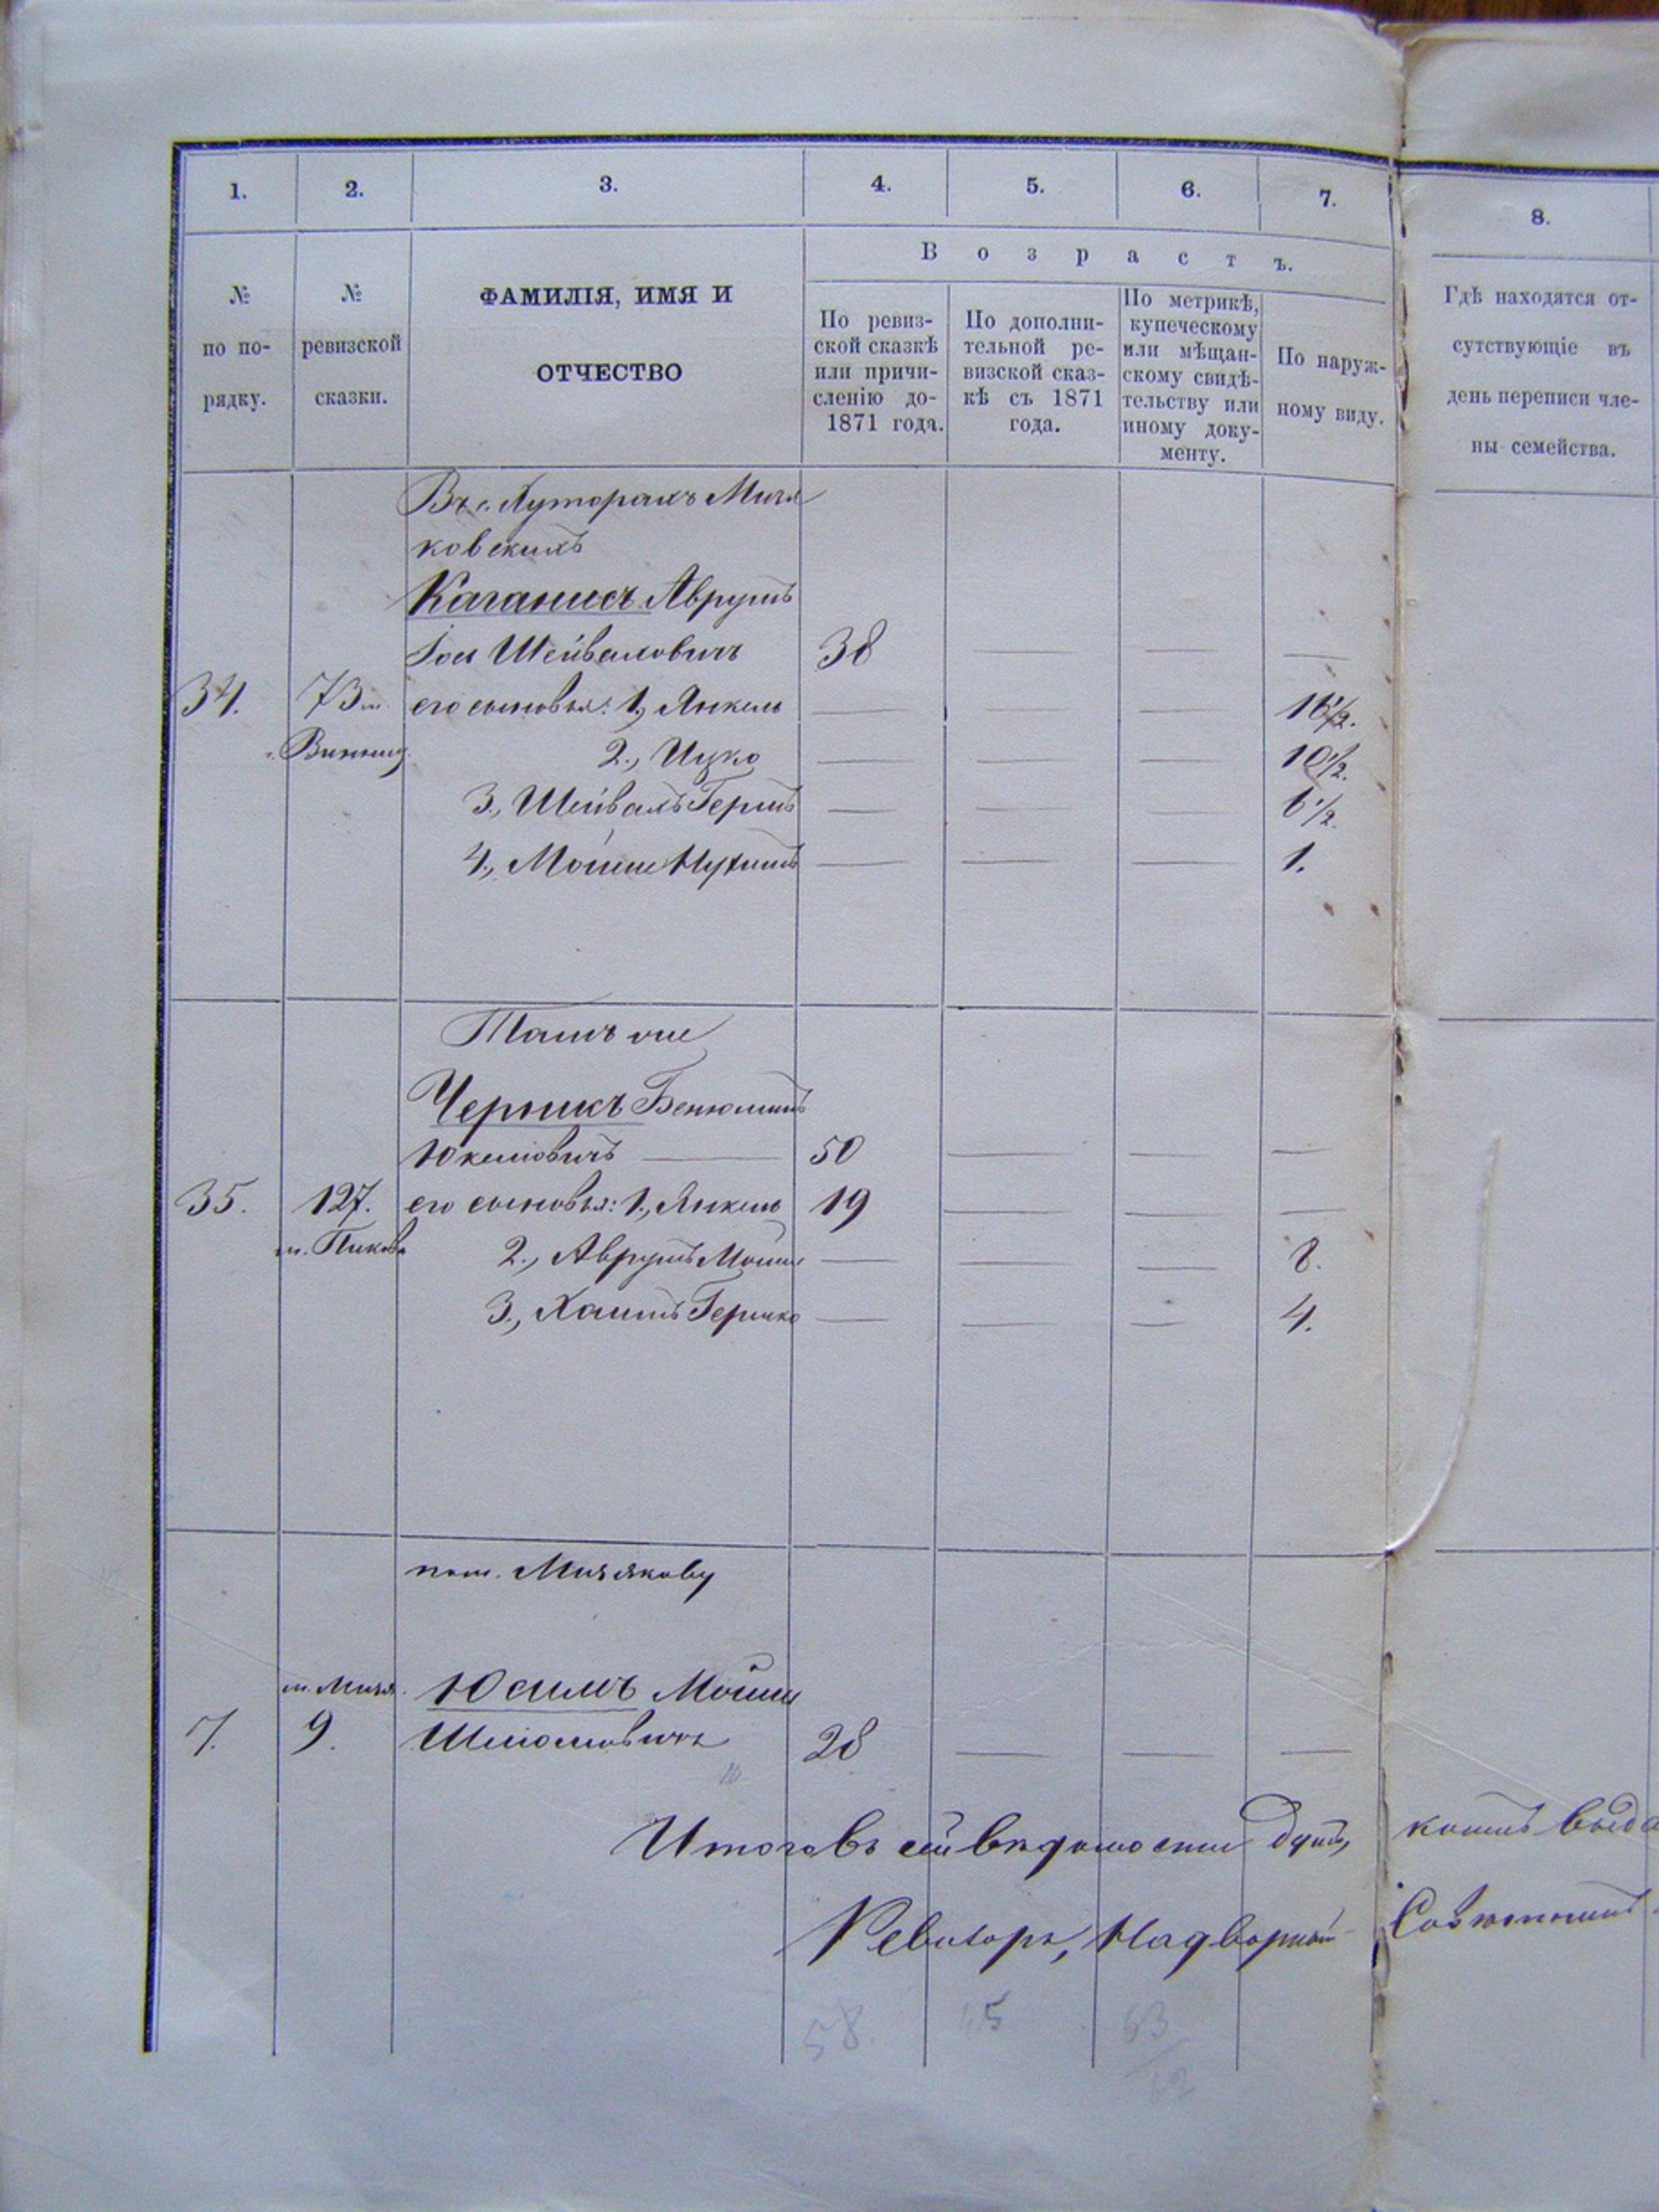 1. 2. 3. 4. 5. 6. 7. 8.
В о з р а с т ъ.
№ по по-рядку.
№ ревизской сказки.
ФАМИЛІЯ, ИМЯ И
ОТЧЕСТВО
По ревиз-
ской сказкѣ
или причи-
сленію до-
1871 года.
По дополни-
тельной ре-
визской сказ-
кѣ съ 1871
года.
По метрикѣ,
купеческому
или мѣщан-
скому свидѣ-
тельству или
иному доку-
менту.
По наруж-
ному виду.
Гдѣ находятся от-
сутствующіе въ
день переписи чле-
ны семейства.
Въ с. Хуторахъ Мизя
ковскихъ
Каганисъ Аврумъ
Іос Шейваховичъ 38 — — —
34. 73 м. его сыновья: 1., Янкель — — 16 1/2.
Винниц. 2., Ицко — — — 10 1/2.
3., Шейвахъ Гершъ — — — 6 1/2.
4., Мошко Нухимъ — — — 1.
Тамъ же
Черникъ Бенюминъ
Юкелiовичъ — 50 — — —
35. 127. его сыновья: 1., Янкель 19 — — —
м. Пиковъ 2., Аврумъ Мошко — — — 8.
3., Хаимъ Гершко — — — 4.
по м. Мизякову
м. Мизя. Юсимъ Мошко
7. 9. Шліомовичъ 28 — — —
Итого въ сей вѣдомости душъ,
Ревизоръ, Надворный Совѣтникъ
58. 45 53
62